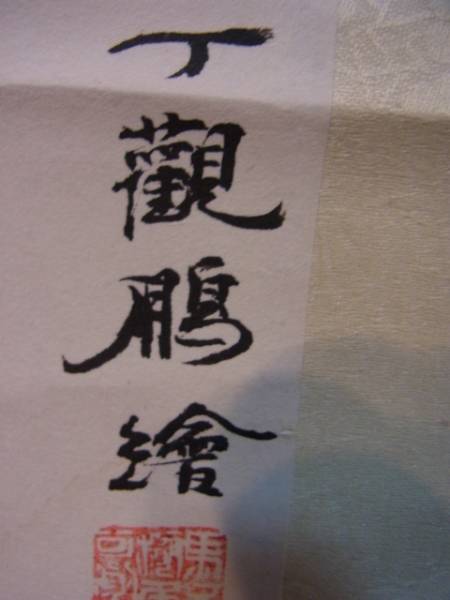 丁觀鵬繪